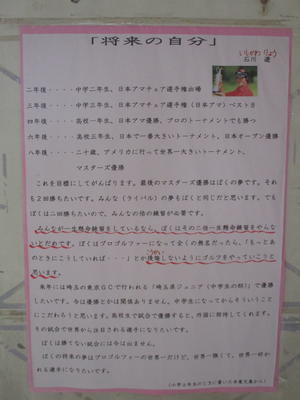 「将来の自分」
いしかわ りょう
石川 遼
二年後・・・・中学二年生、日本アマチュア選手権出場
三年後・・・・中学三年生、日本アマチュア選手権（日本アマ）ベスト８
四年後・・・・高校一年生、日本アマ優勝、プロのトーナメントでも勝つ
六年後・・・・高校三年生、日本で一番大きいトーナメント、日本オープン優勝
八年後・・・・二十歳、アメリカに行って世界一大きいトーナメント、
マスターズ優勝
これを目標にしてがんばります。最後のマスターズ優勝はぼくの夢です。それ
も２回勝ちたいです。みんな（ライバル）の夢もぼくと同じだと思います。でも
ぼくは二回勝ちたいので、みんなの倍の練習が必要です。
みんなが一生懸命練習をしているなら、ぼくはその二倍一生懸命練習をやらな
いとだめです。ぼくはプロゴルファーになって全くの無名だったら、「もっとあ
のときにこうしていれば・・・」とか後悔しないようにゴルフをやっていこうと
思います。
来年には埼玉の東京GCで行われる「埼玉県ジュニア（中学生の部）」で優勝
したいです。今は優勝とかは関係ありません。中学生になってからそういうこと
にこだわろうと思います。高校生で試合で優勝すると、外国に招待してくれます。
その試合で世界から注目される選手になりたいです。
ぼくは勝てない試合には今は出ません。
ぼくの将来の夢はプロゴルファーの世界一だけど、世界一強くて、世界一好か
れる選手になりたいです。